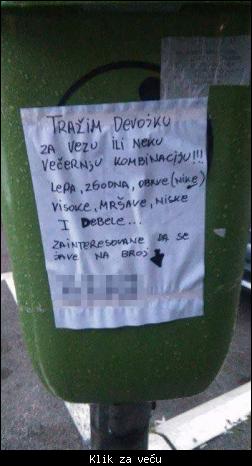 TRAŽIM DEVOJKU
ZA VEZU ILI NEKU
VEČERNJU KOMBINACIJU!!!
LEPA, ZGODNA, OBRVE (NIKE)
VISOKE, MRŠAVE, NISKE
I DEBELE...
ZAINTERESOVANE DA SE
JAVE NA BROJ
Klik za veću